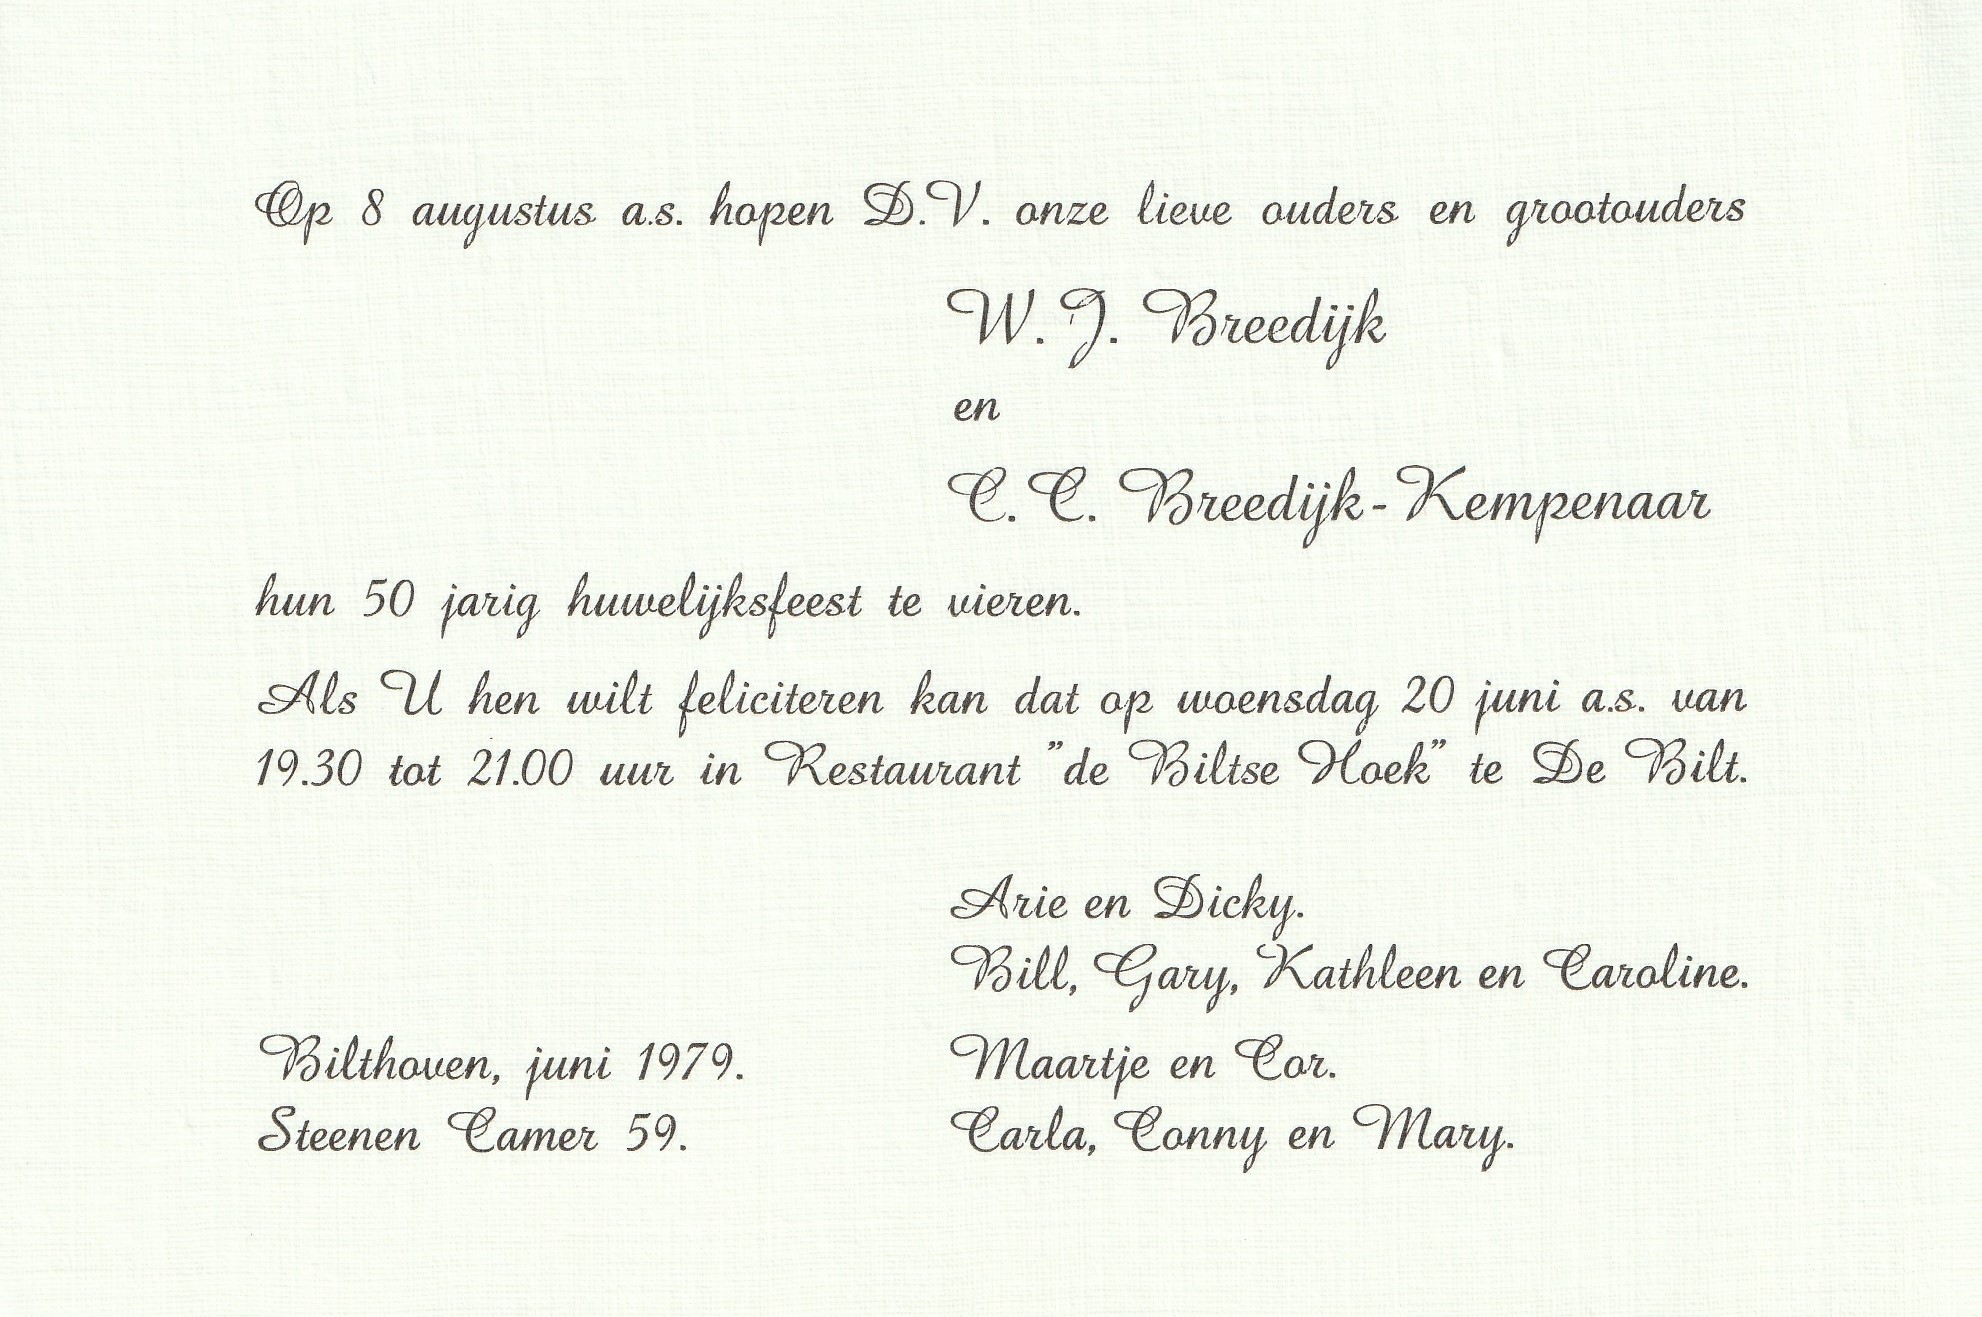 Op 8 augustus a.s. hopen D.V. onze lieve ouders en grootouders
W. J. Breedijk
en
C. C. Breedijk-Kempenaar
hun 50 jarig huwelijksfeest te vieren.
Als U hen wilt feliciteren kan dat op woensdag 20 juni a.s. van
19.30 tot 21.00 uur in Restaurant "de Biltse Hoek" te De Bilt.
Arie en Dicky.
Bill, Gary, Kathleen en Caroline.
Bilthoven, juni 1979. Maartje en Cor.
Steenen Camer 59. Carla, Conny en Mary.